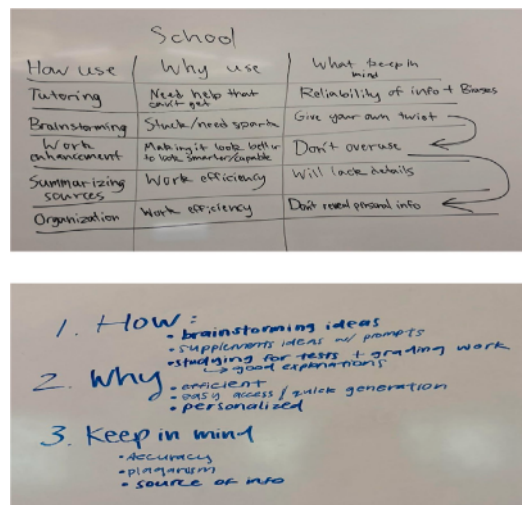 School
How use Why use What keep in mind
Tutoring Need help that can't get Reliability of info + Biases
Brainstorming Stuck/need spark Give your own twist
Work enhancement Making it look better to look smarter/capable Don't overuse
Summarizing sources Work efficiency Will lack details
Organization Work efficiency Don't reveal personal info
1. How:
• brainstorming ideas
• supplements ideas w/ prompts
• studying for tests + grading work
↳ good explanations
2. Why
• efficient
• easy access / quick generation
• personalized
3. Keep in mind
• Accuracy
• plagarism
• source of info